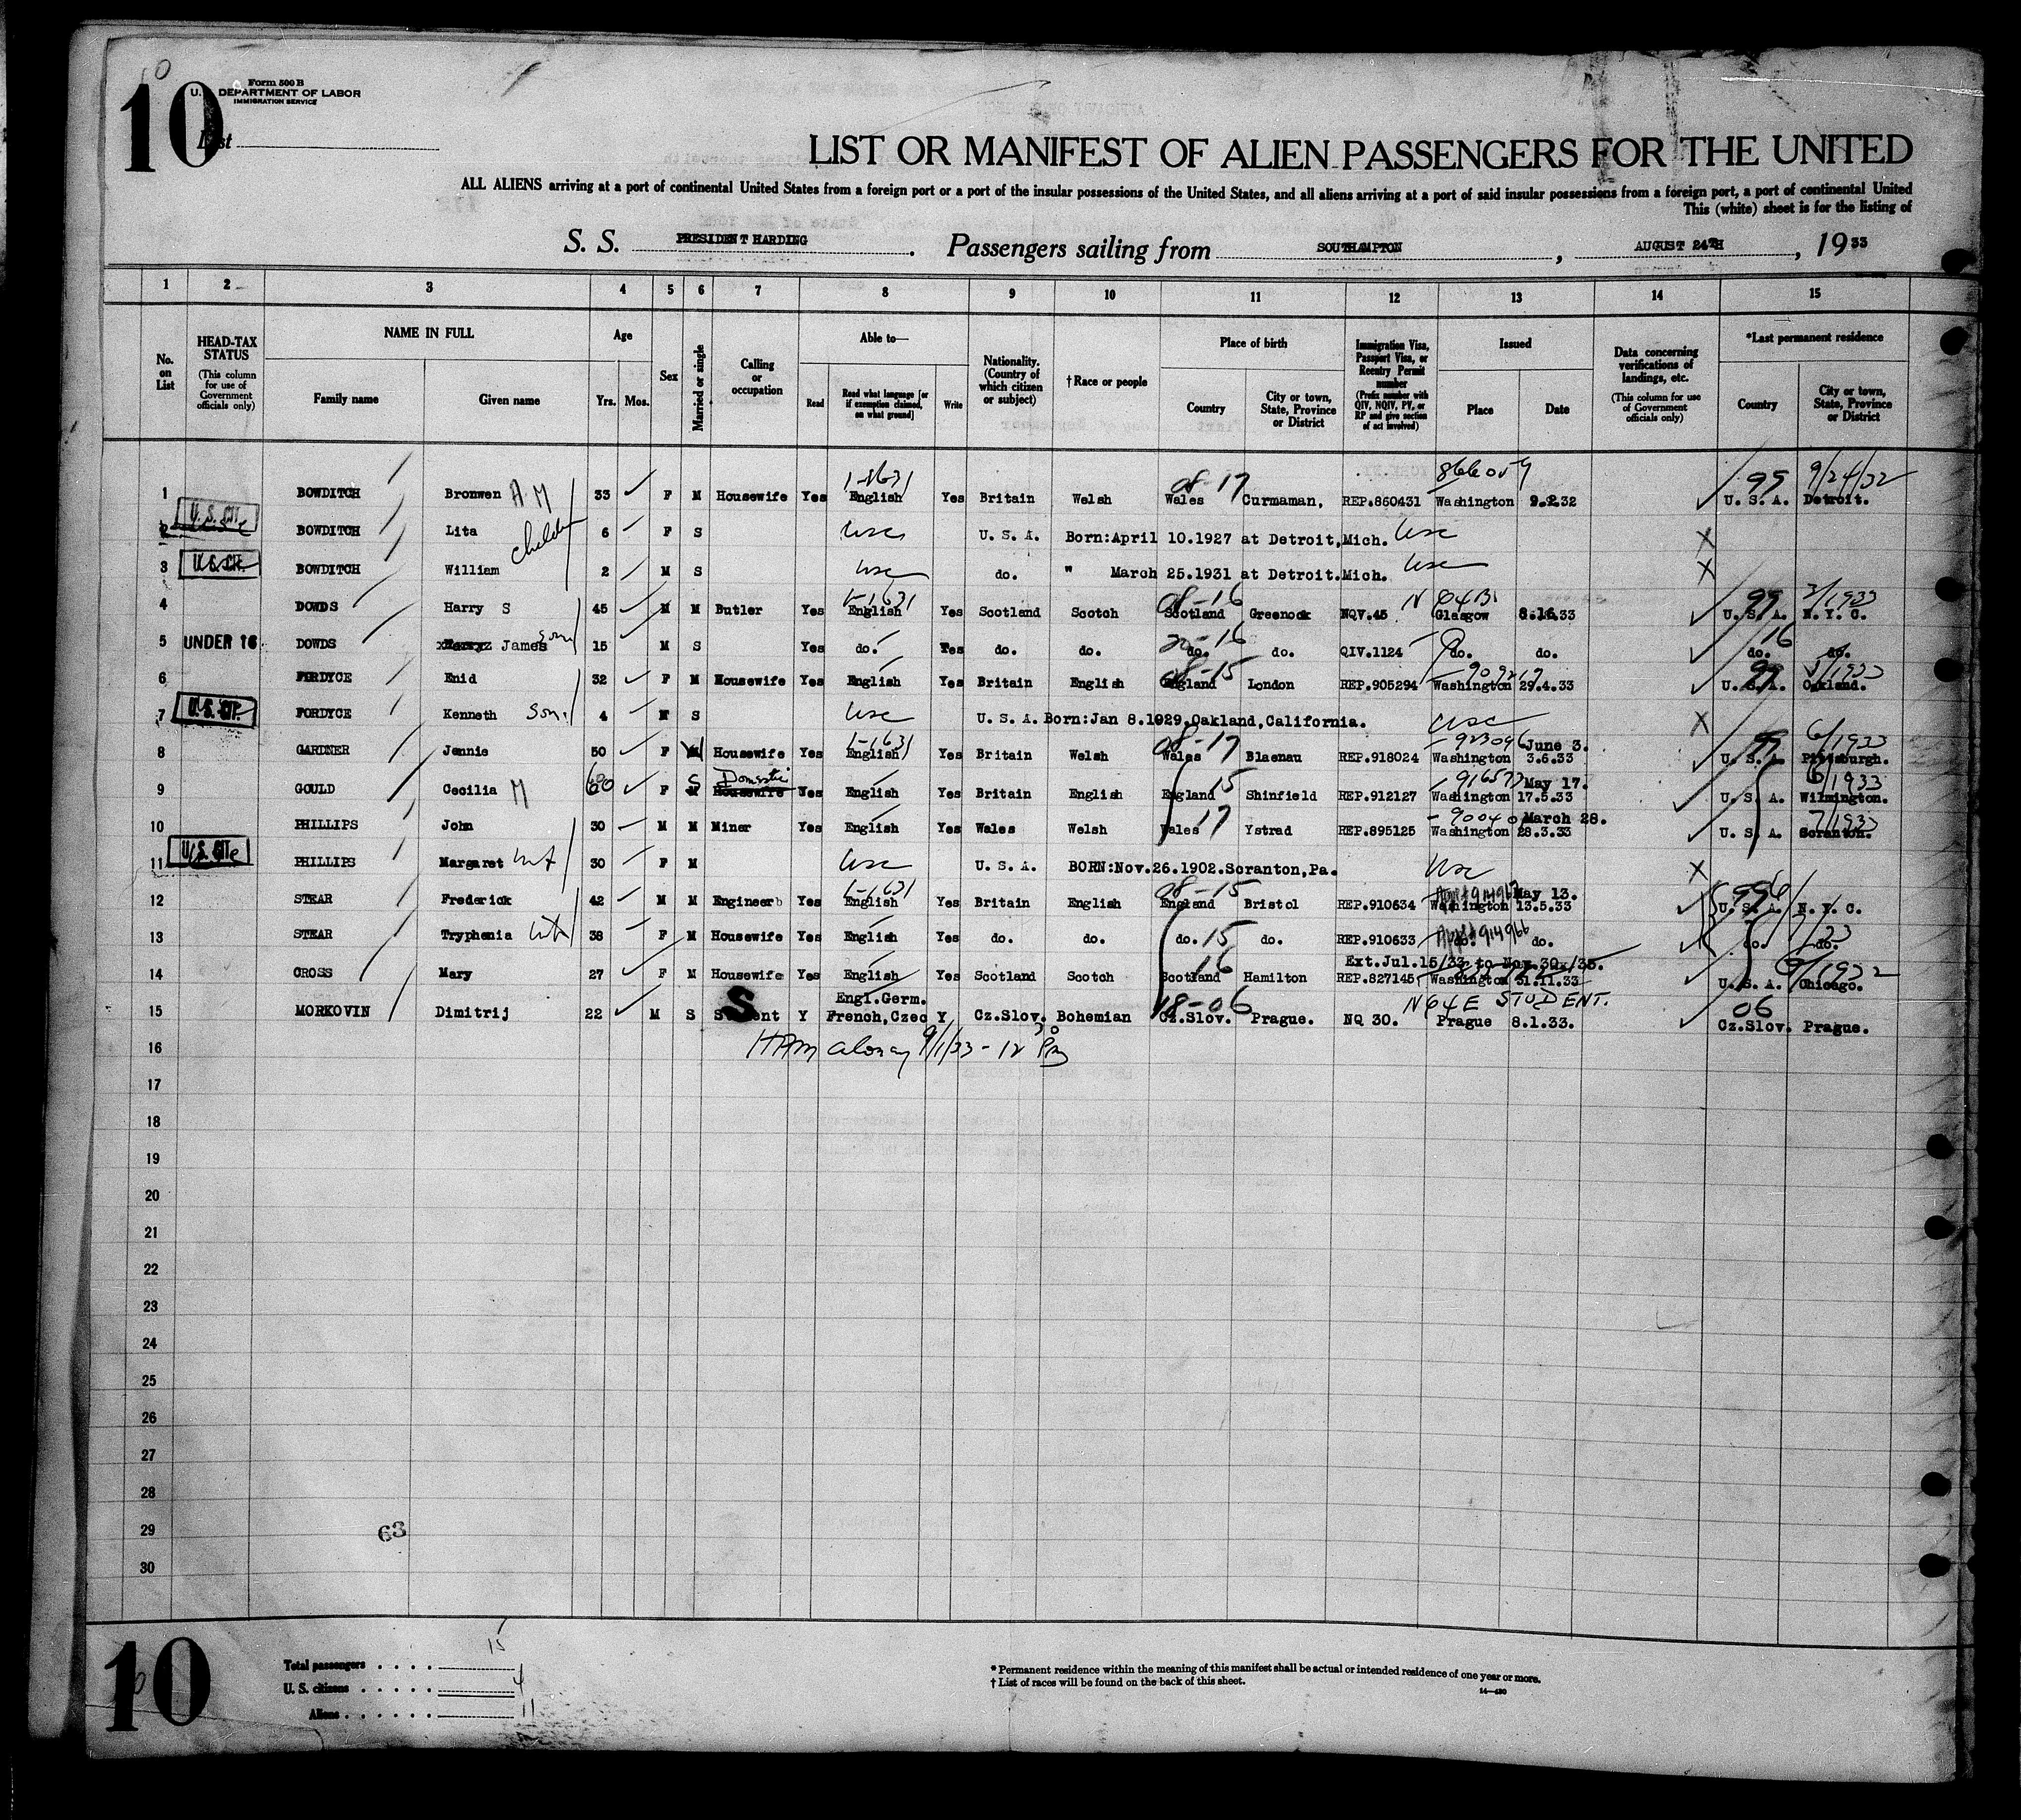 10
Form 500 B
U. S. DEPARTMENT OF LABOR
IMMIGRATION SERVICE
List
LIST OR MANIFEST OF ALIEN PASSENGERS FOR THE UNITED
ALL ALIENS arriving at a port of continental United States from a foreign port or a port of the insular possessions of the United States, and all aliens arriving at a port of said insular possessions from a foreign port, a port of continental United
This (white) sheet is for the listing of
S. S. PRESIDENT HARDING. Passengers sailing from SOUTHAMPTON, AUGUST 24TH, 1933
1 2 3 4 5 6 7 8 9 10 11 12 13 14 15
No. on List
HEAD-TAX STATUS (This column for use of Government officials only)
NAME IN FULL
Family name Given name
Age Yrs. Mos.
Sex
Married or single
Calling or occupation
Able to—
Read Read what language [or if exemption claimed, on what ground] Write
Nationality. (Country of which citizen or subject)
† Race or people
Place of birth
Country City or town, State, Province or District
Immigration Visa, Passport Visa, or Reentry Permit number (Prefix number with QIV, NQIV, PV, or RP and give section of act involved)
Issued
Place Date
Data concerning verifications of landings, etc. (This column for use of Government officials only)
*Last permanent residence
Country City or town, State, Province or District
1-1631 08-17 866059 99 9/24/32
1 BOWDITCH Bronwen A M 33 F M Housewife Yes English Yes Britain Welsh Wales Curmaman, REP.860431 Washington 9.2.32 U. S. A. Detroit.
U. S. CIT.
2 BOWDITCH Lita children 6 F S usc U. S. A. Born:April 10.1927 at Detroit,Mich. usc X
U. S. CIT.
3 BOWDITCH William 2 M S usc do. " March 25.1931 at Detroit.Mich. usc X
1-1631 08-16 N 64 B. 99 3/1933
4 DOWDS Harry S 45 M M Butler Yes English Yes Scotland Scotch Scotland Greenock NQV.45 Glasgow 8.16.33 U. S. A. N. Y. C.
5 UNDER 16 DOWDS James son 15 M S Yes do. Yes do. do. do. do. QIV.1124 do. do. do. do.
08-15 909217 99
6 FORDYCE Enid 32 F M Housewife Yes English Yes Britain English England London REP.905294 Washington 29.4.33 U. S. A. Oakland.
U. S. CIT.
7 FORDYCE Kenneth son. 4 M S usc U. S. A. Born:Jan 8.1929,Oakland,California. usc X
1-1631 08-17 923096 June 3. 99 6/1933
8 GARDNER Jennie 50 F Housewife Yes English Yes Britain Welsh Wales Blaenau REP.918024 Washington 3.6.33 U. S. A. Pittsburgh.
S Domestic 15 916573 May 17. 6/1933
9 GOULD Cecilia M 60 F M Housewife Yes English Yes Britain English England Shinfield REP.912127 Washington 17.5.33 U. S. A. Wilmington.
17 March 28. 7/1933
10 PHILLIPS John 30 M M Miner Yes English Yes Wales Welsh Wales Ystrad REP.895125 Washington 28.3.33 U. S. A. Scranton.
U. S. CIT.
11 PHILLIPS Margaret wf 30 F M usc U. S. A. BORN:Nov.26.1902.Scranton,Pa. usc X
1-1631 08-15 914967 May 13. 99
12 STEAR Frederick 42 M M Engineer Yes English Yes Britain English England Bristol REP.910634 Washington 13.5.33 U. S. A. N. Y. C.
15 914966
13 STEAR Tryphenia wf 38 F M Housewife Yes English Yes do. do. do. do. REP.910633 do. do. do. do.
16 Ext.Jul.15/33 to Nov.30x/35. 9/1932
14 CROSS Mary 27 F M Housewife Yes English Yes Scotland Scotch Scotland Hamilton REP.827145 Washington 31.11.33 U. S. A. Chicago.
S Engl.Germ. 18-06 N 64 E STUDENT. 06
15 MORKOVIN Dimitrij 22 M S Student Y French,Czec Y Cz.Slov. Bohemian Cz.Slov. Prague. NQ 30. Prague 8.1.33. Cz.Slov. Prague.
16 9/1/33 - 12 30 Pm
17
18
19
20
21
22
23
24
25
26
27
28
29 63
30
10
Total passengers . . . . 15
U. S. citizens . . . . . 4
Aliens . . . . . . 11
* Permanent residence within the meaning of this manifest shall be actual or intended residence of one year or more.
† List of races will be found on the back of this sheet.
14—430